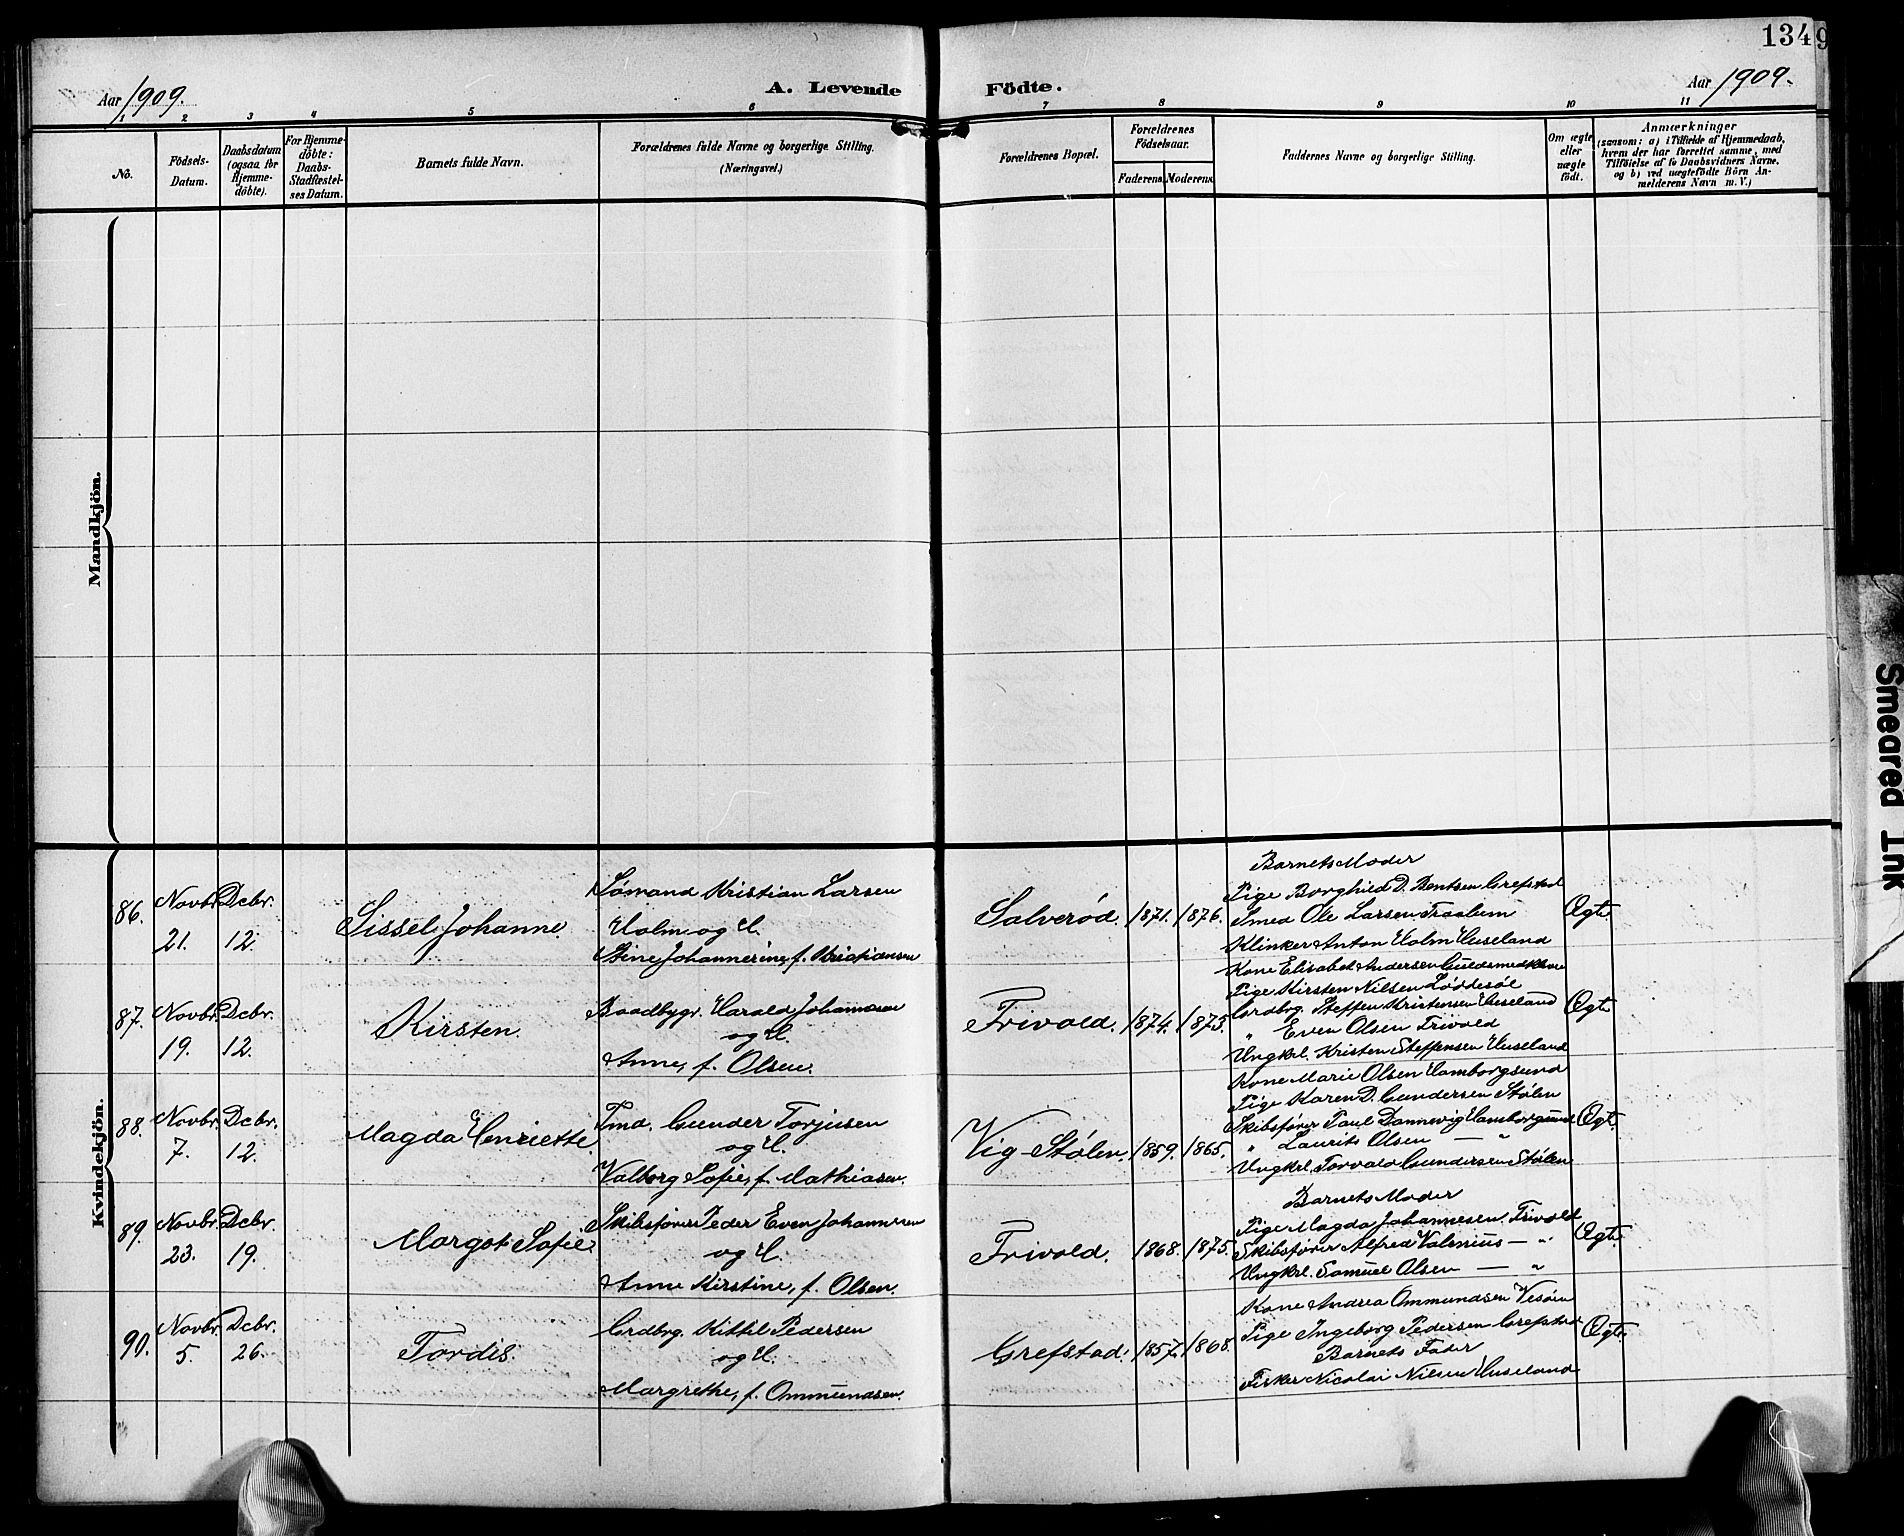 1349
Aar 1909.
A. Levende Födte.
Aar 1909.
1 2 3 4 5 6 7 8 9 10 11
No.
Födsels-
Datum.
Daabsdatum
(ogsaa for
Hjemme-
döbte).
For Hjemme-
döbte:
Daabs-
Stadfæstel-
ses Datum.
Barnets fulde Navn.
Forældrenes fulde Navne og borgerlige Stilling.
(Næringsvei.)
Forældrenes Bopæl.
Forældrenes
Födselsaar.
Faderens. Moderens.
Faddernes Navne og borgerlige Stilling.
Om ægte
eller
uægte
födt.
Anmærkninger
(saasom: a) i Tilfælde af Hjemmedaab,
hvem der har forrettet samme, med
Tilföielse af to Daabsvidners Navne,
og b) ved uægtefödte Börn An-
melderens Navn m. V.)
Mandkjön.
Kvindekjön.
86.
Novbr.
21.
Dcbr.
12.
Sissel Johanne.
Sømand Kristian Larsen
Holm og H.
Stine Johannerine, f. Kristiansen
Salverød.
1871.
1876.
Barnets Moder
Pige Borghild D. Bentsen Grefstad
Smed Ole Larsen Traalum
Klinker Anton Holm Huseland
Ægt.
87.
Novbr.
19.
Dcbr.
12.
Kirsten.
Baadbygr. Harald Johannesen
og H.
Anne, f. Olsen.
Frivold.
1874.
1873.
Kone Elisabet Andersen
Pige Kirsten Nilsen Løddesøl
Grdbrg. Steffen Kristensen Huseland
" Even Olsen Frivold
Ungkrl. Kristen Steffensen Huseland
Ægt.
88.
Novbr.
7.
Dcbr.
12.
Magda Henriette.
Tmd. Gunder Torjusen
og H.
Valborg Sofie, f. Mathiasen.
Vig-Stølen.
1859.
1865.
Kone Marie Olsen Hamborgsund
Pige Karen D. Gundersen Stølen
Skibsfører Paul Dannevig Hamborgsund
" Laurits Olsen — "
Ungkrl. Torvald Gundersen Stølen
Ægt.
89.
Novbr.
23.
Dcbr.
19.
Margot Sofie.
Skibsfører Peder Even Johannesen
og H.
Anne Kirstine, f. Olsen.
Frivold.
1868.
1875.
Barnets Moder
Pige Magda Johannesen Frivold
Skibsfører Alfred Valenius — "
Ungkrl. Samuel Olsen — "
Ægt.
90.
Novbr.
5.
Dcbr.
26.
Tordis.
Grdbrg. Kittil Pedersen
og H.
Margrethe, f. Ommundsen.
Grefstad.
1857.
1868.
Kone Andrea Ommundsen Vesøen
Pige Ingeborg Pedersen Grefstad
Barnets Fader
Fisker Nicolai Nilsen Huseland
Ægt.
Smeared Ink